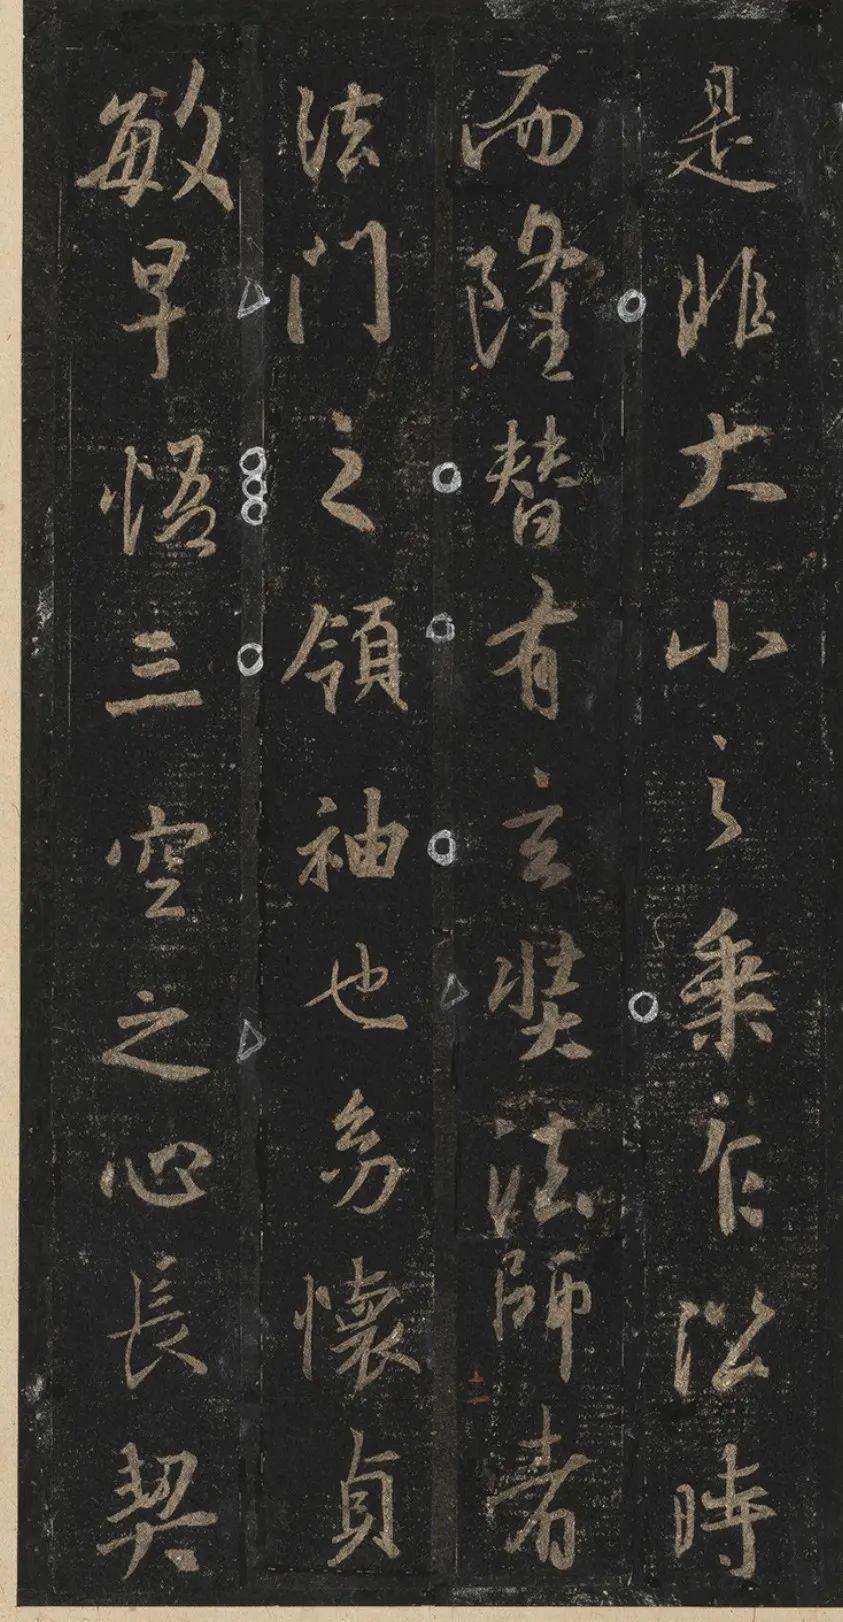 是非大小之乘乍沿時
而隆替有玄奘法師者
法門之領袖也幼懷貞
敏早悟三空之心長契
十二